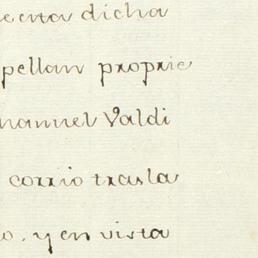 esta dicha
pellan proprie
Manuel Valdi
corrio trasla
o. y en vista